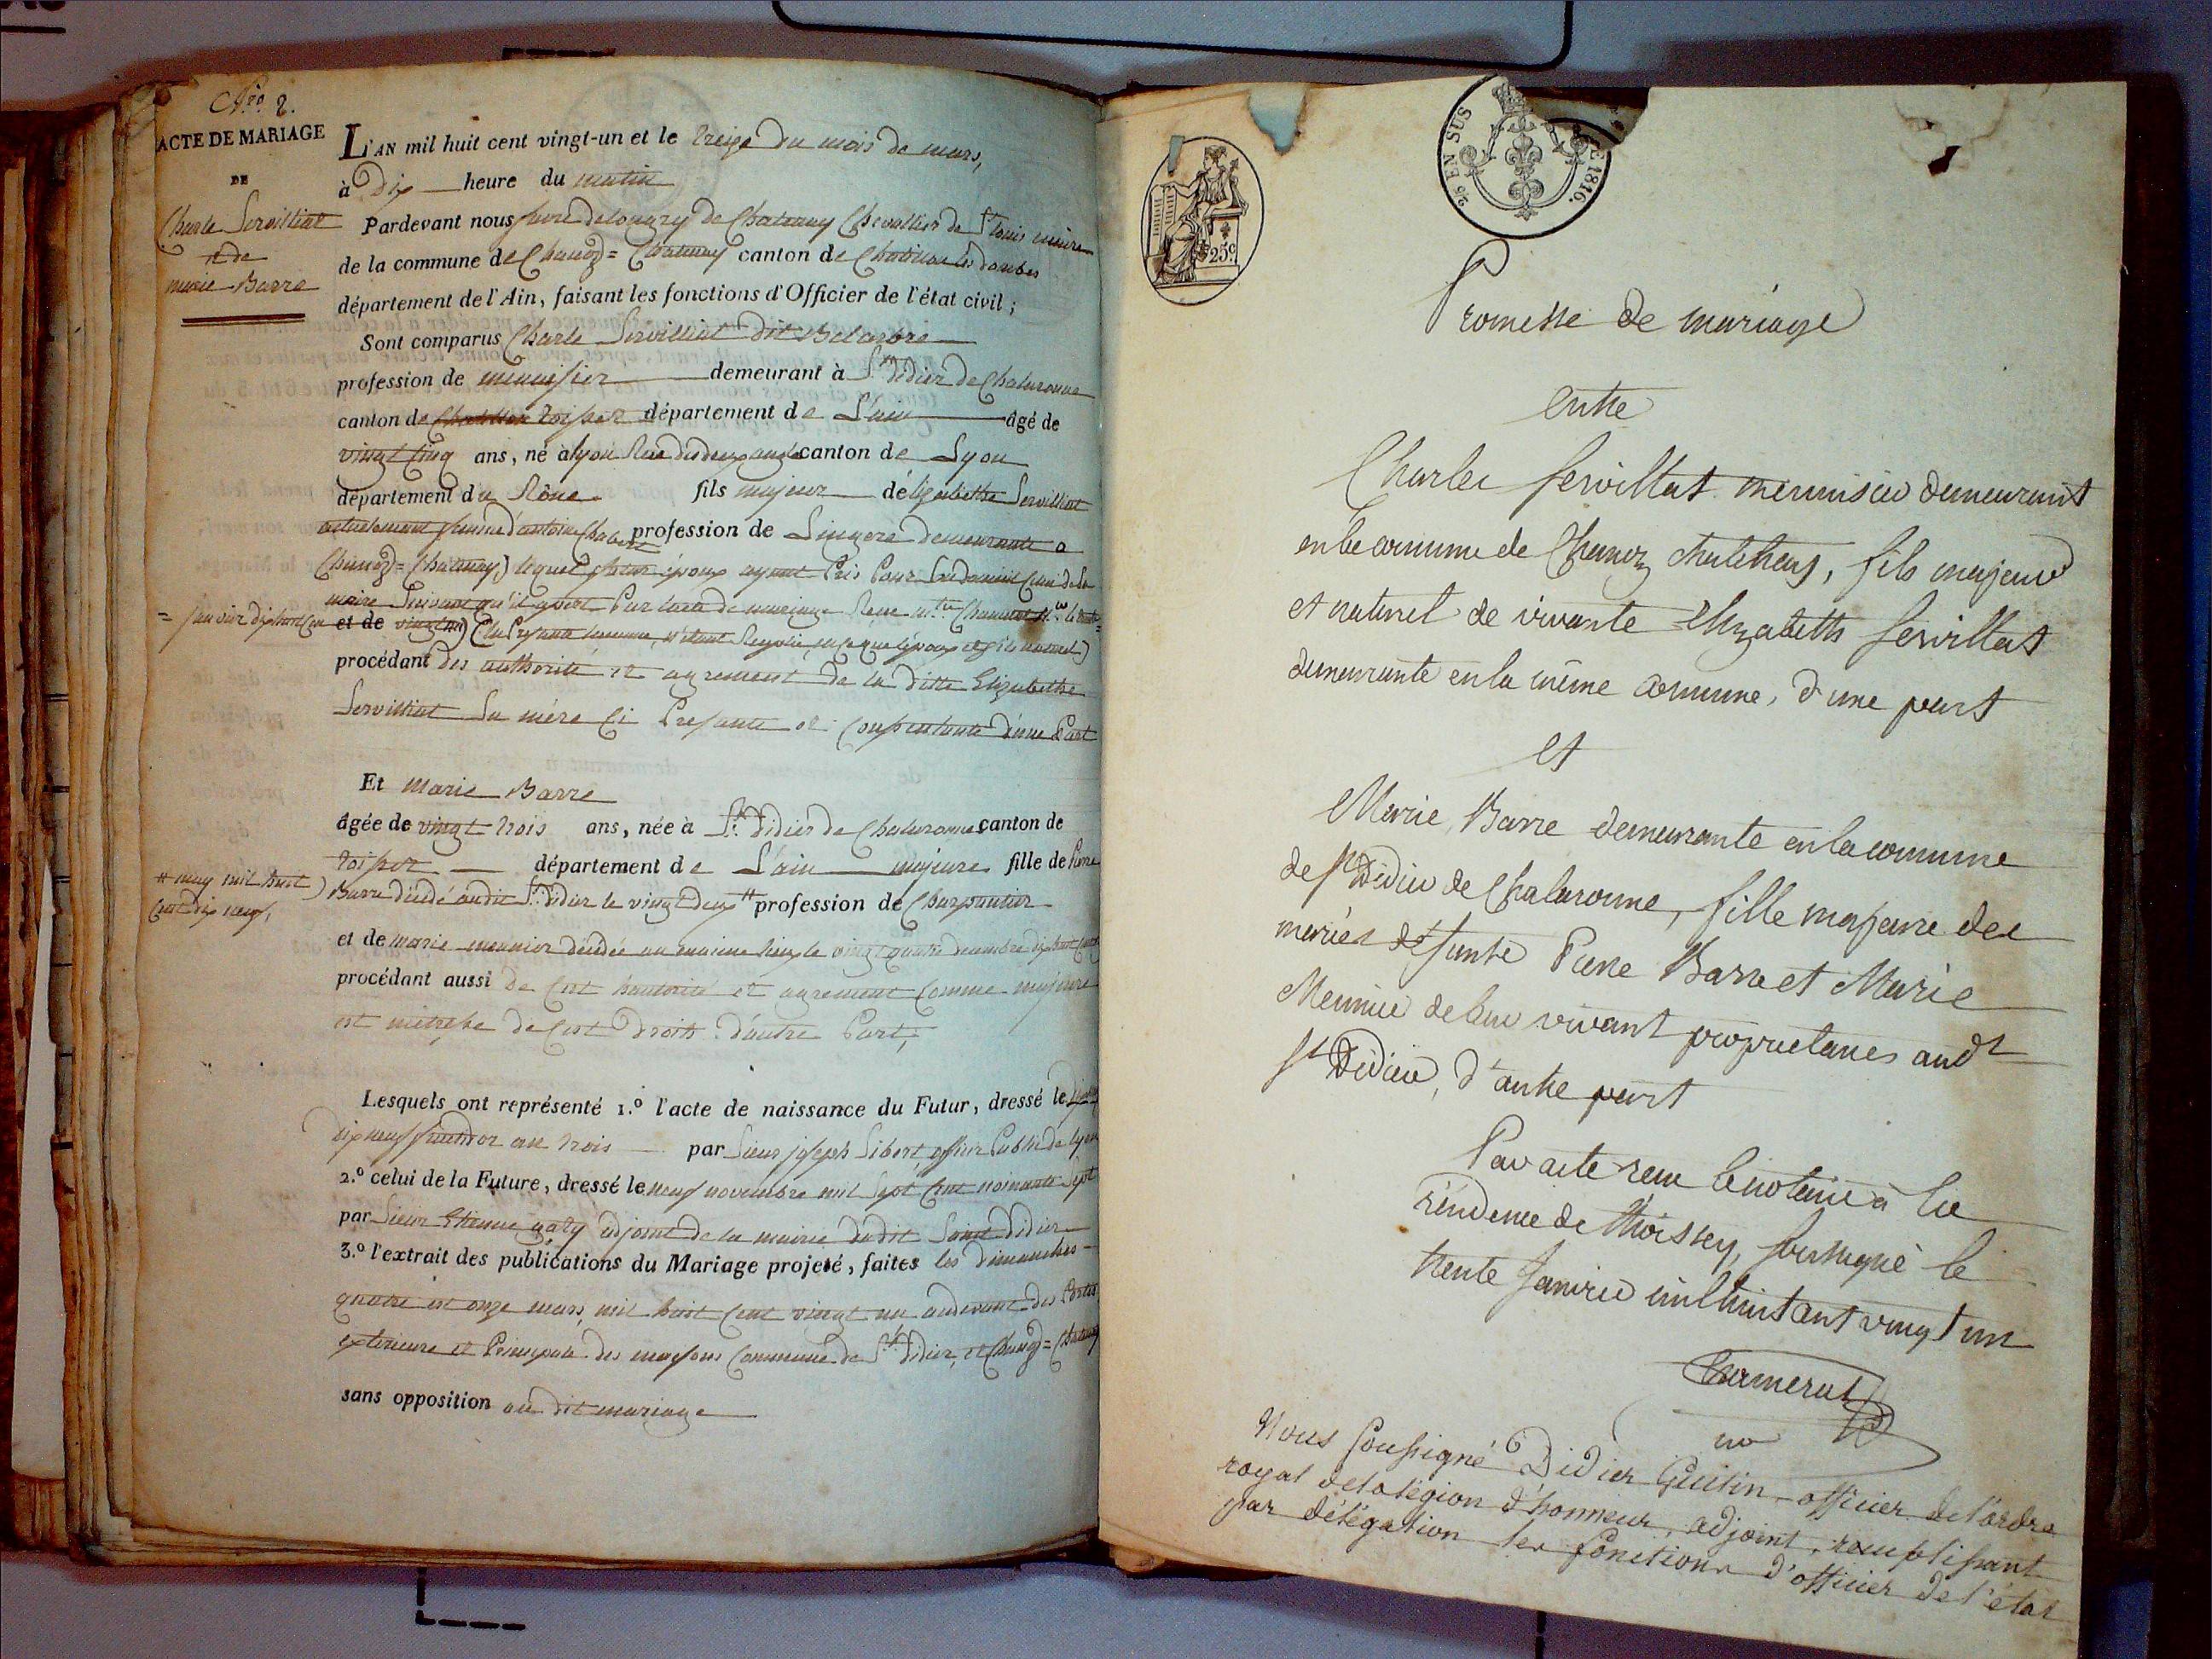 Nro. 2.
ACTE DE MARIAGE
DE
Charle Servilliat
et de
marie Barre
L'AN mil huit cent vingt-un et le treize du mois de mars,
à Dix heure du matin
Pardevant nous de Chatenay Chevallier de St Louis maire
de la commune de Chanoz = Chatenay canton de Chatillon les dombes
département de l'Ain, faisant les fonctions d'Officier de l'état civil ;
Sont comparus Charle Servilliat dit Belarbre
profession de menuisier demeurant à St Didier de Chalaronne
canton de toissey département de L'ain âgé de
vingt cinq ans, né à lyon Rue des deux canton de Lyon
département du Rône fils majeur d'elizabethe Servilliat
actuelement femme d'antoine Chabert profession de Lingere demeurante a
Chanoz = Chatenay, lequel futur époux ayant Pris Pour celui de Sa
maire Suivant qu'il apert Par lacte de mariage Reçu
= janvier dix huit cent
et de vingt un)
procédant des authorité et agrement de la ditte Elizabethe
Servilliat Sa mére Ci Presante et Consentante d'une Part
Et Marie Barre
âgée de vingt trois ans, née à St. Didier de Chalaronne canton de
toissey département de L'ain majeure fille de Pierre
# may mil huit
cent dix neuf,
Barre décédé audit St Didier le vingt deux # profession de Charpantier
et de marie meunier décédée au maime lieu le vingt quatre décembre dix huit cent
procédant aussi de Cest hautorité et agrement Comme majeure
est maitresse de Cest Droits d'autre Part,
Lesquels ont représenté 1.º l'acte de naissance du Futur, dressé le
dix neuf an trois par Sieur joseph Sibert officier Public de lyon
2.º celui de la Future, dressé le neuf novembre mil Sept Cent nonante Sept
par Sieur Etienne adjoint de la mairie dudit Saint Didier
3.º l'extrait des publications du Mariage projeté, faites les dimanches
quatre et onze mars, mil huit Cent vingt un audevant des Portes
exterieure et Principale des maisons Commune de St. Didier, et Chanoz = Chatenay
sans opposition au dit mariage
25c.
2/5 EN SUS
DE 1816.
Promesse de mariage
entre
Charles Servillat menuisier demeurant
en la commune de Chanoz Chatenay, fils majeur
et naturel de vivante Elizabeth Servillat
demeurante en la même commune, d'une part
et
Marie Barre demeurante en la commune
de St Didier de Chalaronne, fille majeure des
mariés défunts Pierre Barre et Marie
Meunier de leur vivant proprietaires audt
St Didier, d'autre part
Par acte reçu le notaire à la
résidence de Thoissey, soussigné le
trente Janvier mil huit cent vingt un
no
Nous soussigné Didier Guitin officier de l'ordre
royal de la légion d'honneur, adjoint, remplissant
par délégation les fonctions d'officier de l'état